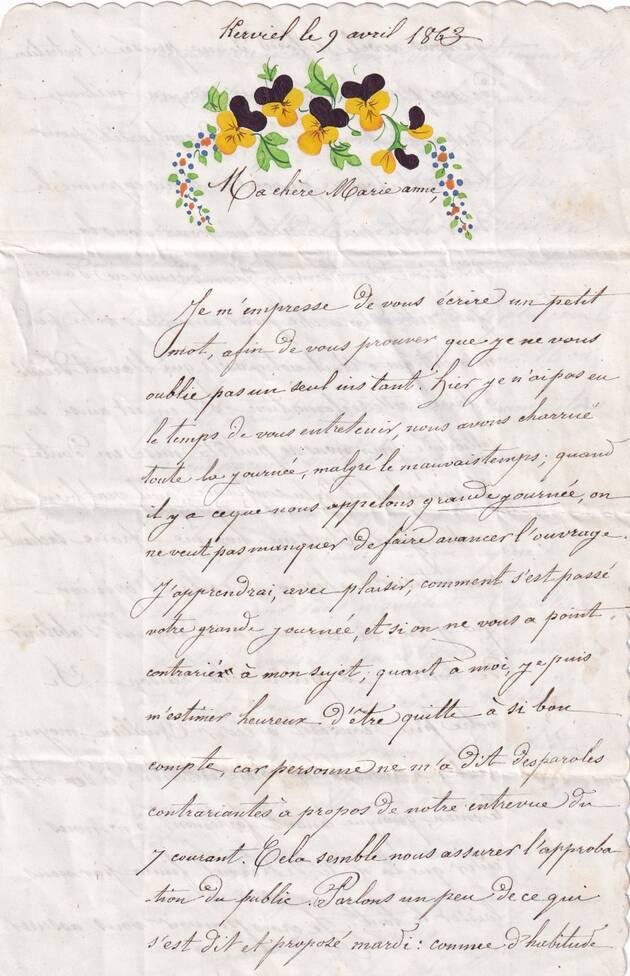 Kerviel le 9 avril 1863
Ma chère Marie anne,
Je m'empresse de vous écrire un petit
mot, afin de vous prouver que je ne vous
oublie pas un seul instant. Hier je n'ai pas eu
le temps de vous entretenir, nous avons charrué
toute la journée, malgré le mauvais temps; quand
il y a ce que nous appelons grande journée, on
ne veut pas manquer de faire avancer l'ouvrage.
J'apprendrai, avec plaisir, comment s'est passé
votre grande journée, et si on ne vous a point
contrariée à mon sujet, quant à moi, je puis
m'estimer heureux d'être quitte à si bon
compte, car personne ne m'a dit des paroles
contrariantes à propos de notre entrevue du
7 courant. Cela semble nous assurer l'approba-
tion du public. Parlons un peu de ce qui
s'est dit et proposé mardi: comme d'habitude